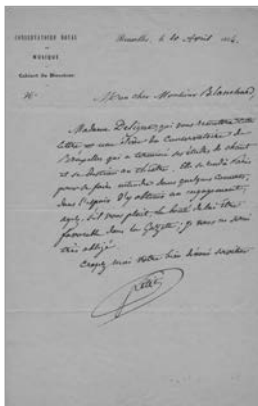 CONSERVATOIRE ROYAL
DE
MUSIQUE
Cabinet du Directeur
N°
Bruxelles, le 20 Avril
Mon cher Monsieur Blanchard
Madame qui vous remettra cette
lettre est une élève du Conservatoire de
Bruxelles qui a terminé ses études de chant
et se destine au théâtre. Elle se rend à Paris
pour se faire entendre dans quelques concerts,
dans l'espoir d'y obtenir un engagement;
ayez, s'il vous plait, la bonté de lui être
favorable dans la Gazette; je vous en serai
très obligé.
Croyez moi votre bien dévoué serviteur
Fétis